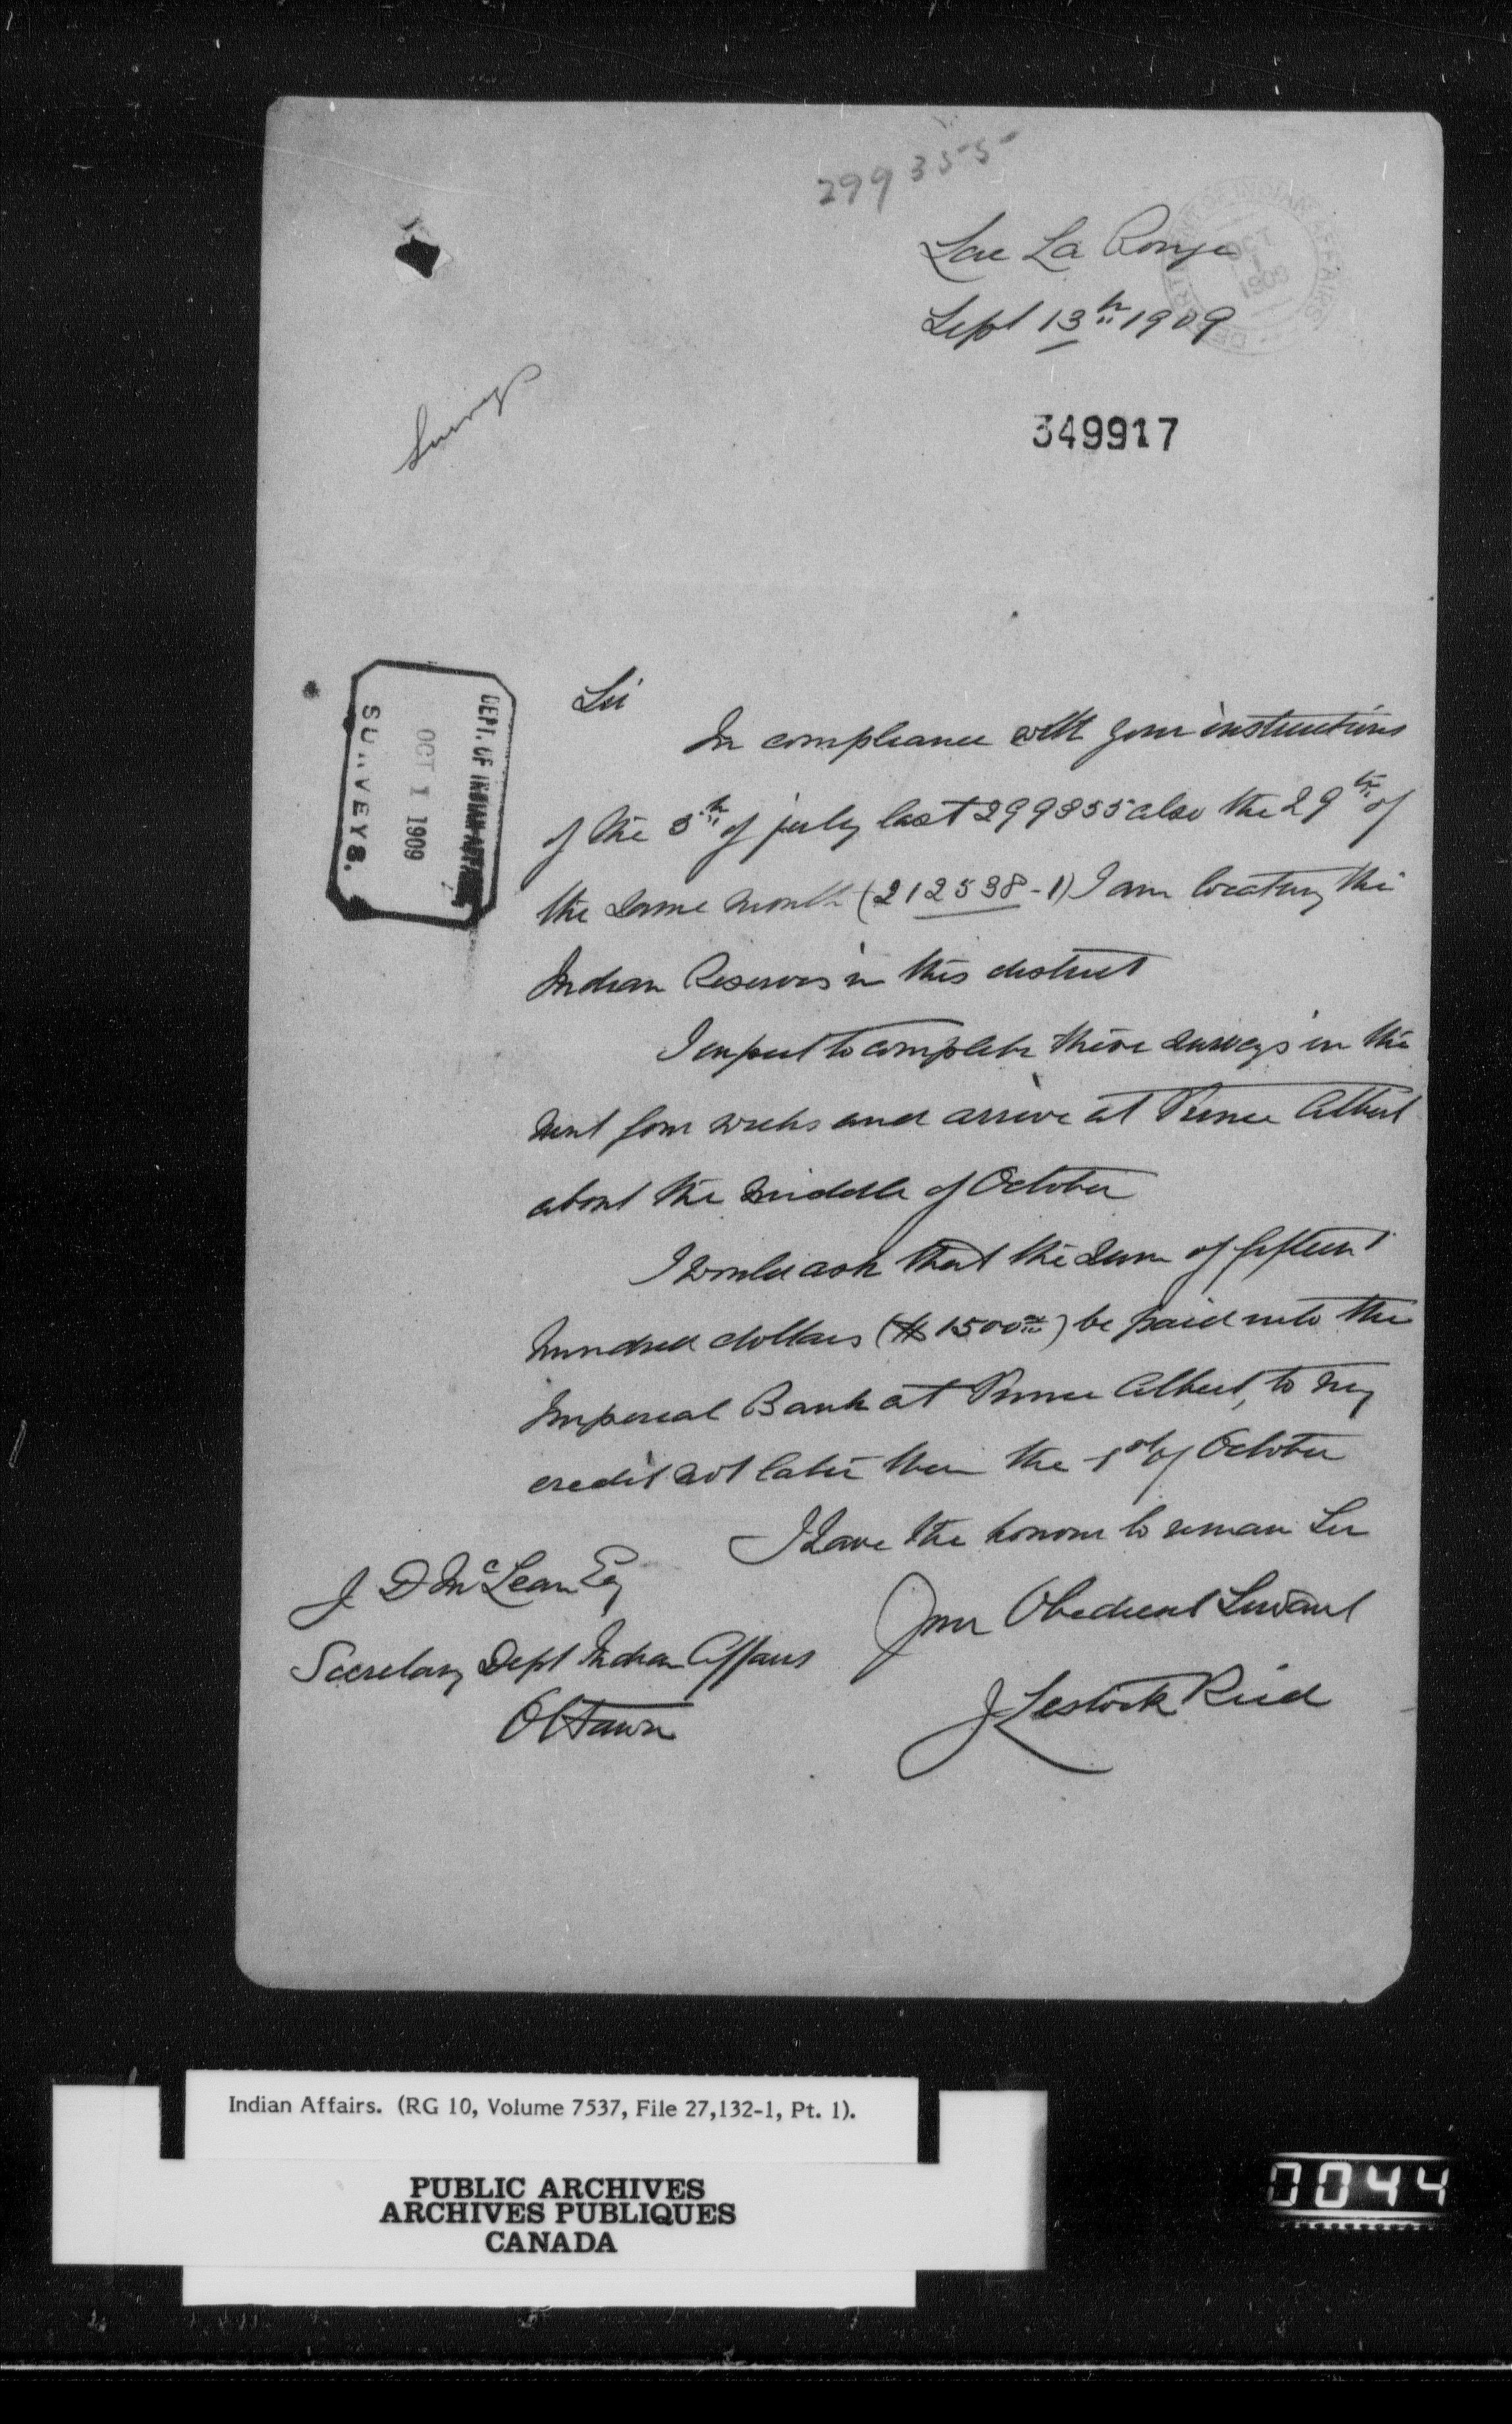 299355
Lac La Ronge
Sept 13th 1909
DEPARTMENT OF INDIAN AFFAIRS
OCT 1 1909
Surveys
349917
DEPT. OF INDIAN AFFAIRS
OCT 1 1909
SURVEYS.
Sir
In compliance with your instructions
of the 5th of july last 299355 also the 29th of
the same month (212538-1) I am locating the
Indian Reserves in this district
I expect to complete these surveys in the
next four weeks and arrive at Prince Albert
about the middle of October
I would ask that the sum of fifteen
hundred dollars ($1500.00) be paid into the
Imperial Bank at Prince Albert, to my
credit not later than the 15th of October
I have the honour to remain Sir
Your Obedient Servant
J Lestock Reid
J D McLean Esq
Secretary Dept Indian Affairs
Ottawa
Indian Affairs. (RG 10, Volume 7537, File 27,132-1, Pt. 1).
PUBLIC ARCHIVES
ARCHIVES PUBLIQUES
CANADA
0044